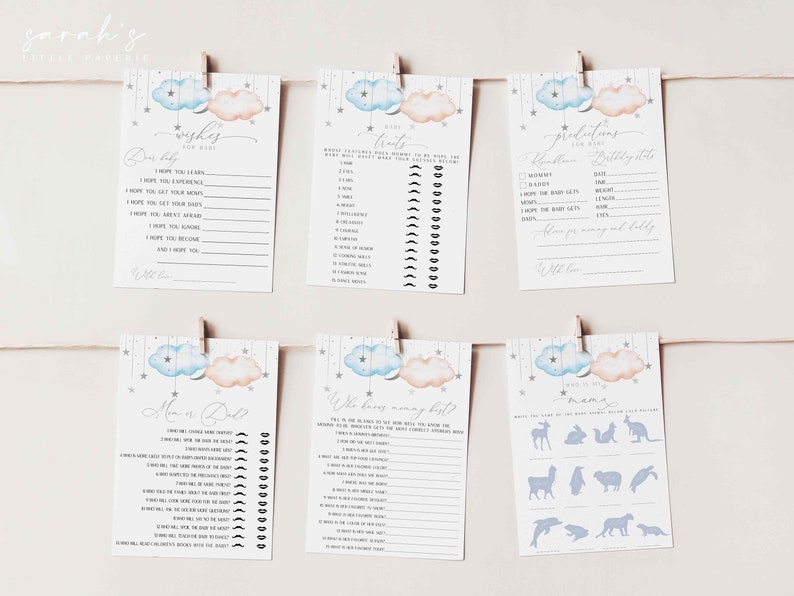 sarah's
LITTLE PAPERIE
wishes
FOR BABY
Dear baby
I HOPE YOU LEARN
I HOPE YOU EXPERIENCE
I HOPE YOU GET YOUR MOMS
I HOPE YOU GET YOUR DAD'S
I HOPE YOU AREN'T AFRAID
I HOPE YOU IGNORE
I HOPE YOU BECOME
AND I HOPE YOU
With love
BABY
traits
WHOSE FEATURES DOES MOMMY-TO-BE HOPE THE
BABY WILL HAVE? MAKE YOUR GUESSES BELOW!
1. HAIR
2. EYES
3. EARS
4. NOSE
5. SMILE
6. HEIGHT
7. INTELLIGENCE
8. CREATIVITY
9. COURAGE
10. EMPATHY
11. SENSE OF HUMOR
12. COOKING SKILLS
13. ATHLETIC SKILLS
14. FASHION SENSE
15. DANCE MOVES
predictions
FOR BABY
Resemblance Birthday stats
MOMMY DATE
DADDY TIME
I HOPE THE BABY GETS WEIGHT
MOMS LENGTH
I HOPE THE BABY GETS HAIR
DADS EYES
Advice for mommy and daddy
With love
Mom or Dad?
1. WHO WILL CHANGE MORE DIAPERS?
2. WHO WILL SPOIL THE BABY THE MOST?
3. WHO WANTS MORE KIDS?
4. WHO IS MORE LIKELY TO PUT ON BABY'S DIAPER BACKWARD?
5. WHO WILL TAKE MORE PHOTOS OF THE BABY?
6. WHO SUSPECTED THE PREGNANCY FIRST?
7. WHO WILL BE MORE PATIENT?
8. WHO TOLD THE FAMILY ABOUT THE BABY FIRST?
9. WHO WILL COOK MORE FOOD FOR THE BABY?
10. WHO WILL ASK THE DOCTOR MORE QUESTIONS?
11. WHO WILL SAY NO THE MOST?
12. WHO WILL SPOIL THE BABY THE MOST?
13. WHO WILL TEACH THE BABY TO DANCE?
14. WHO WILL READ CHILDREN'S BOOKS WITH THE BABY?
Who knows mommy best?
FILL IN THE BLANKS TO SEE HOW WELL YOU KNOW THE
MOMMY-TO-BE. WHOEVER GETS THE MOST CORRECT ANSWERS WINS!
1. WHEN IS MOMMY'S BIRTHDAY?
2. HOW DID SHE MEET DADDY?
3. WHEN IS HER DUE DATE?
4. WHAT ARE HER TOP FOOD CRAVINGS?
5. WHAT IS HER FAVORITE COLOR?
6. HOW MANY KIDS DOES SHE WANT?
7. WHERE WAS SHE BORN?
8. WHAT IS HER MIDDLE NAME?
9. WHAT IS HER FAVORITE DESSERT?
10. WHAT IS HER FAVORITE TV SHOW?
11. WHAT IS HER FAVORITE BOOK?
12. WHAT IS THE COLOR OF HER EYES?
13. WHAT IS HER SHOE SIZE?
14. WHAT IS HER FAVORITE SEASON?
15. WHAT IS HER FAVORITE FOOD?
WHO IS MY
mama
WRITE THE NAME OF THE BABY ANIMAL BELOW EACH PICTURE